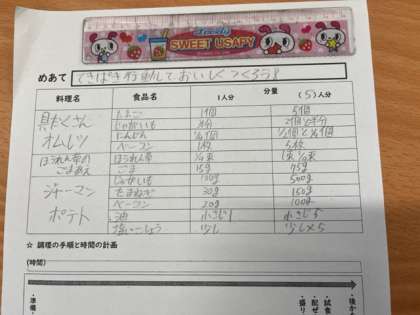 Lovely
SWEET USAPY
めあて てきぱき行動しておいしくつくろう!
料理名 食品名 分量
1人分 (5)人分
具だくさんオムレツ たまご 1個 5個
じゃがいも 半分 2個と半分
にんじん 1/4個 1個と1/4個
ベーコン 1枚 5枚
ほうれん草のごまあえ ほうれん草 1/4束 1束1/4束
ごま 15g 75g
ジャーマンポテト じゃがいも 100g 500g
たまねぎ 30g 150g
ベーコン 20g 100g
油 小さじ1 小さじ5
塩・こしょう 少し 少し×5
☆ 調理の手順と時間の計画
(時間)
・準備
・試食
・配ぜ
・盛り
・後か